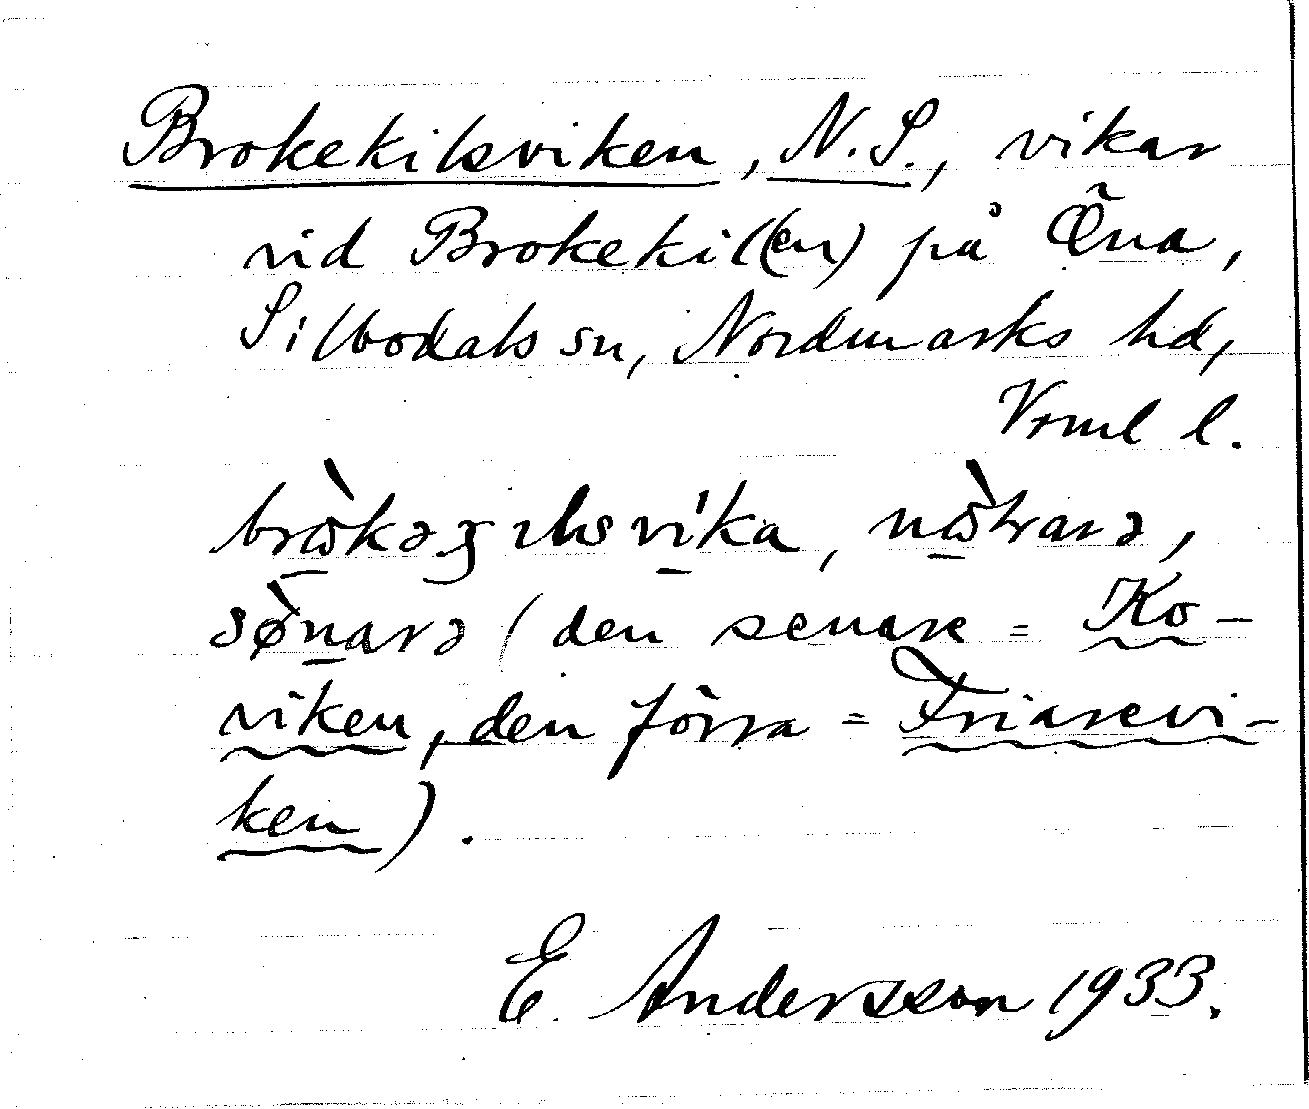 Brokekilsviken, N. S., vikar
vid Brokekil(en) på Õna,
Silbodals sn, Nordmarks hd,
Vrml l.
sønarə (den senare = Ko-
viken, den förra = Friarevi-
ken).
E. Andersson 1933.